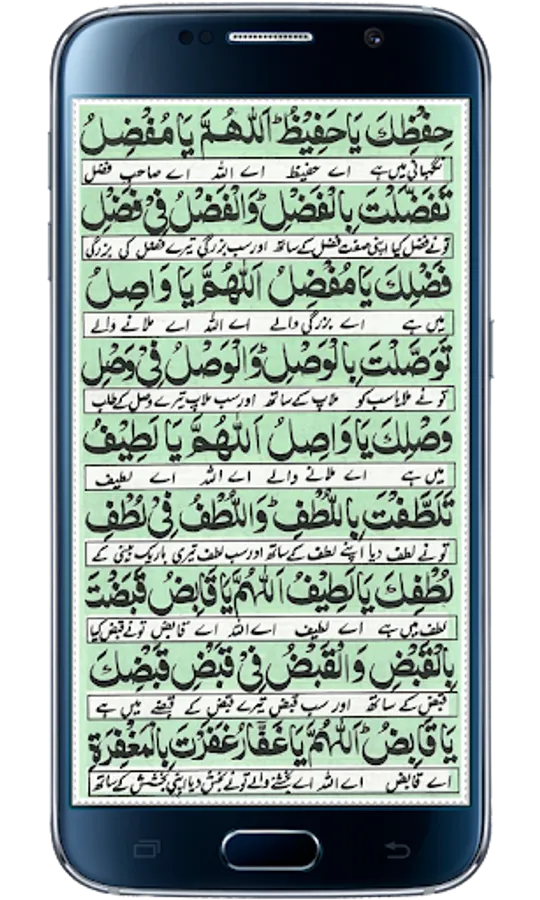 حِفْظِكَ يَا حَفِيْظُ ؕ اَللّٰهُمَّ يَا مُفْضِلُ
نگہبانی میں ہے اے حفیظ اے اللہ اے صاحب فضل
تَفَضَّلْتَ بِالْفَضْلِ وَالْفَضْلُ فِیْ فَضْلِ
تونے فضل کیا اپنی صفت فضل کے ساتھ اور سب بزرگی تیرے فضل کی بزرگی
فَضْلِكَ يَا مُفْضِلُ اَللّٰهُمَّ يَا وَاصِلُ
میں ہے اے بزرگی والے اے اللہ اے ملانے والے
تَوَصَّلْتَ بِالْوَصْلِ وَالْوَصْلُ فِیْ وَصْلِ
تونے ملایا سب کو ملاپ کے ساتھ اور سب ملاپ تیرے وصل کے
وَصْلِكَ يَا وَاصِلُ اَللّٰهُمَّ يَا لَطِيْفُ
میں ہے اے ملانے والے اے اللہ اے لطیف
تَلَطَّفْتَ بِاللُّطْفِ وَاللُّطْفُ فِیْ لُطْفِ
تونے لطف دیا اپنے لطف کے ساتھ اور سب لطف تیری باریک بینی کے
لُطْفِكَ يَا لَطِيْفُ اَللّٰهُمَّ يَا قَابِضُ قَبَضْتَ
لطف میں ہے اے لطیف اے اللہ اے قابض تونے قبض کیا
بِالْقَبْضِ وَالْقَبْضُ فِیْ قَبْضِ قَبْضِكَ
قبض کے ساتھ اور سب قبض تیرے قبض کے قبضے میں ہے
يَا قَابِضُ ؕ اَللّٰهُمَّ يَا غَفَّارُ غَفَرْتَ بِالْمَغْفِرَةِ
اے قابض اے اللہ اے بخشنے والے تونے بخش دیا اپنی بخشش کے ساتھ